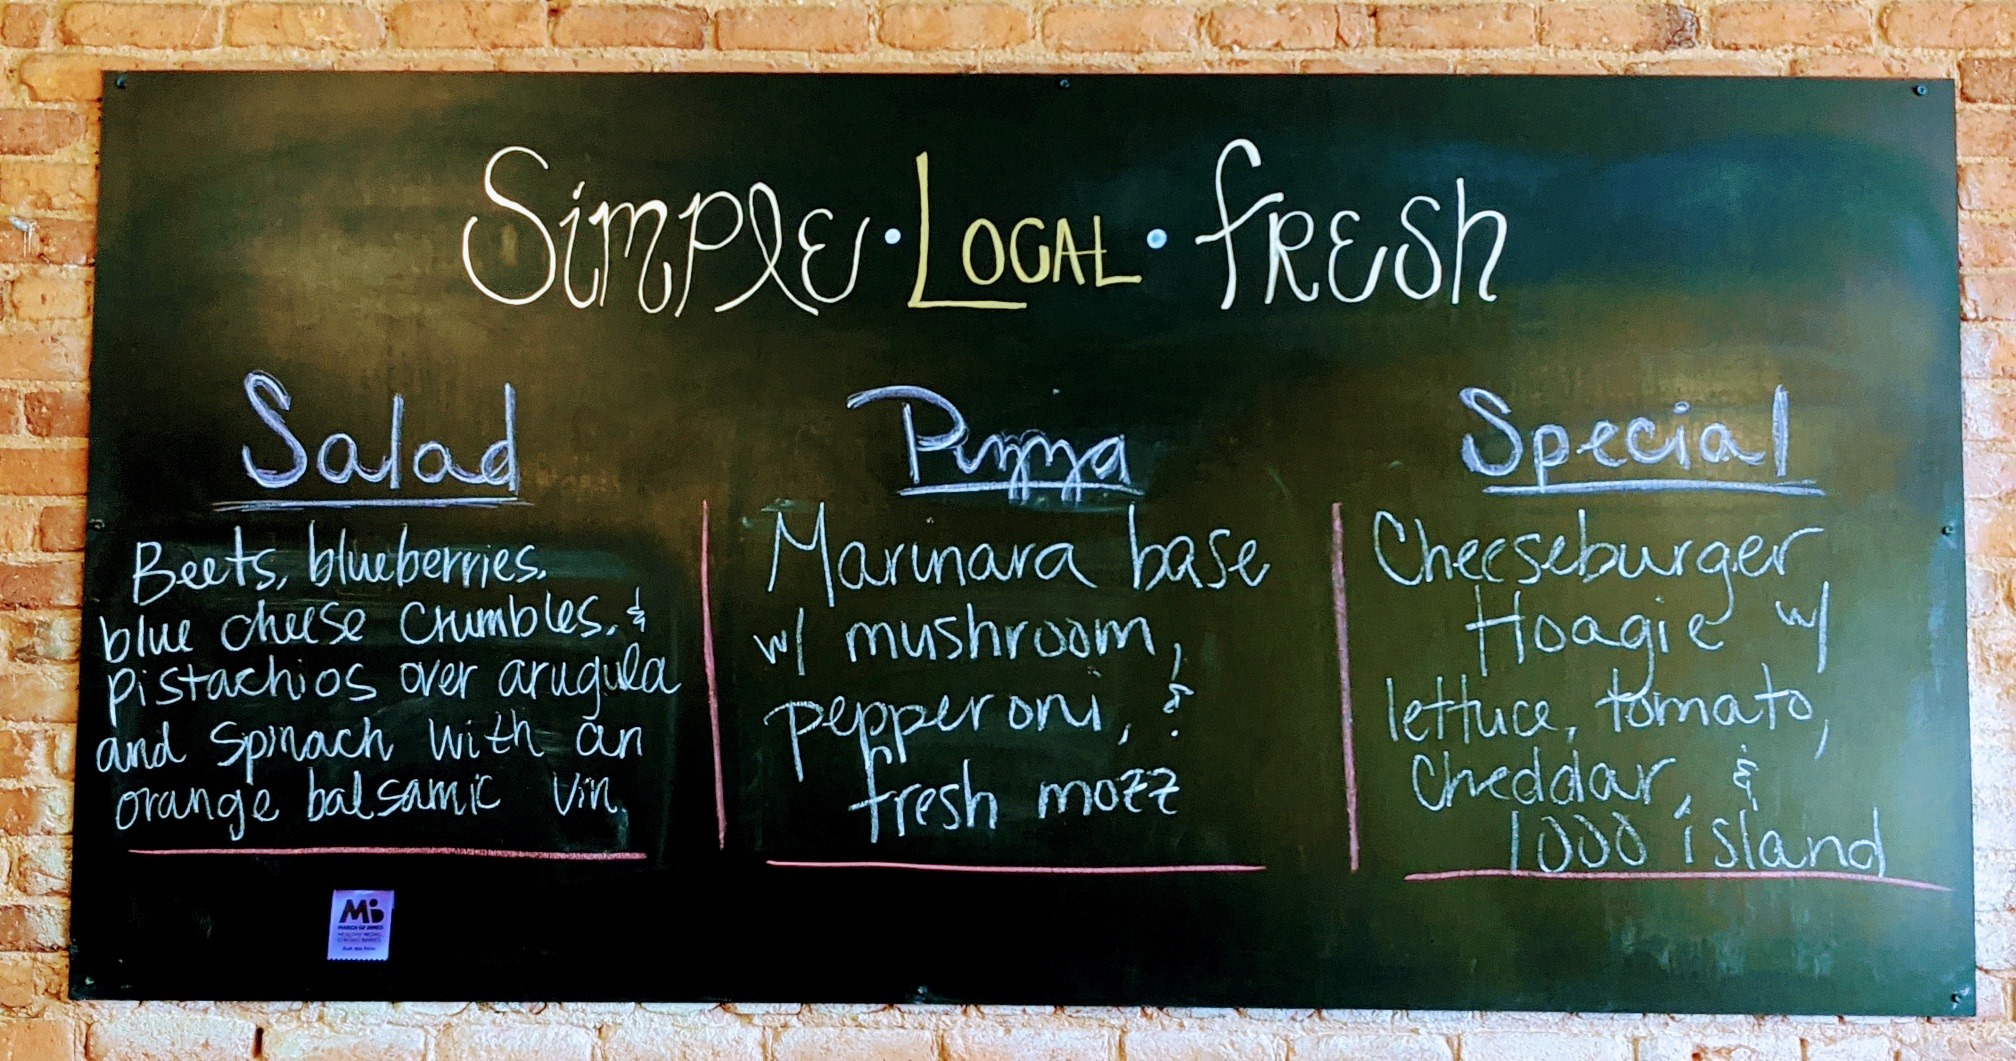 Simple · Local · Fresh
Salad
Beets, blueberries,
blue cheese crumbles, &
pistachios over arugula
and spinach with an
orange balsamic vin.
Pizza
Marinara base
w/ mushroom,
pepperoni, &
fresh mozz
Special
Cheeseburger
Hoagie w/
lettuce, tomato,
Cheddar, &
1000 island
MARCH OF DIMES